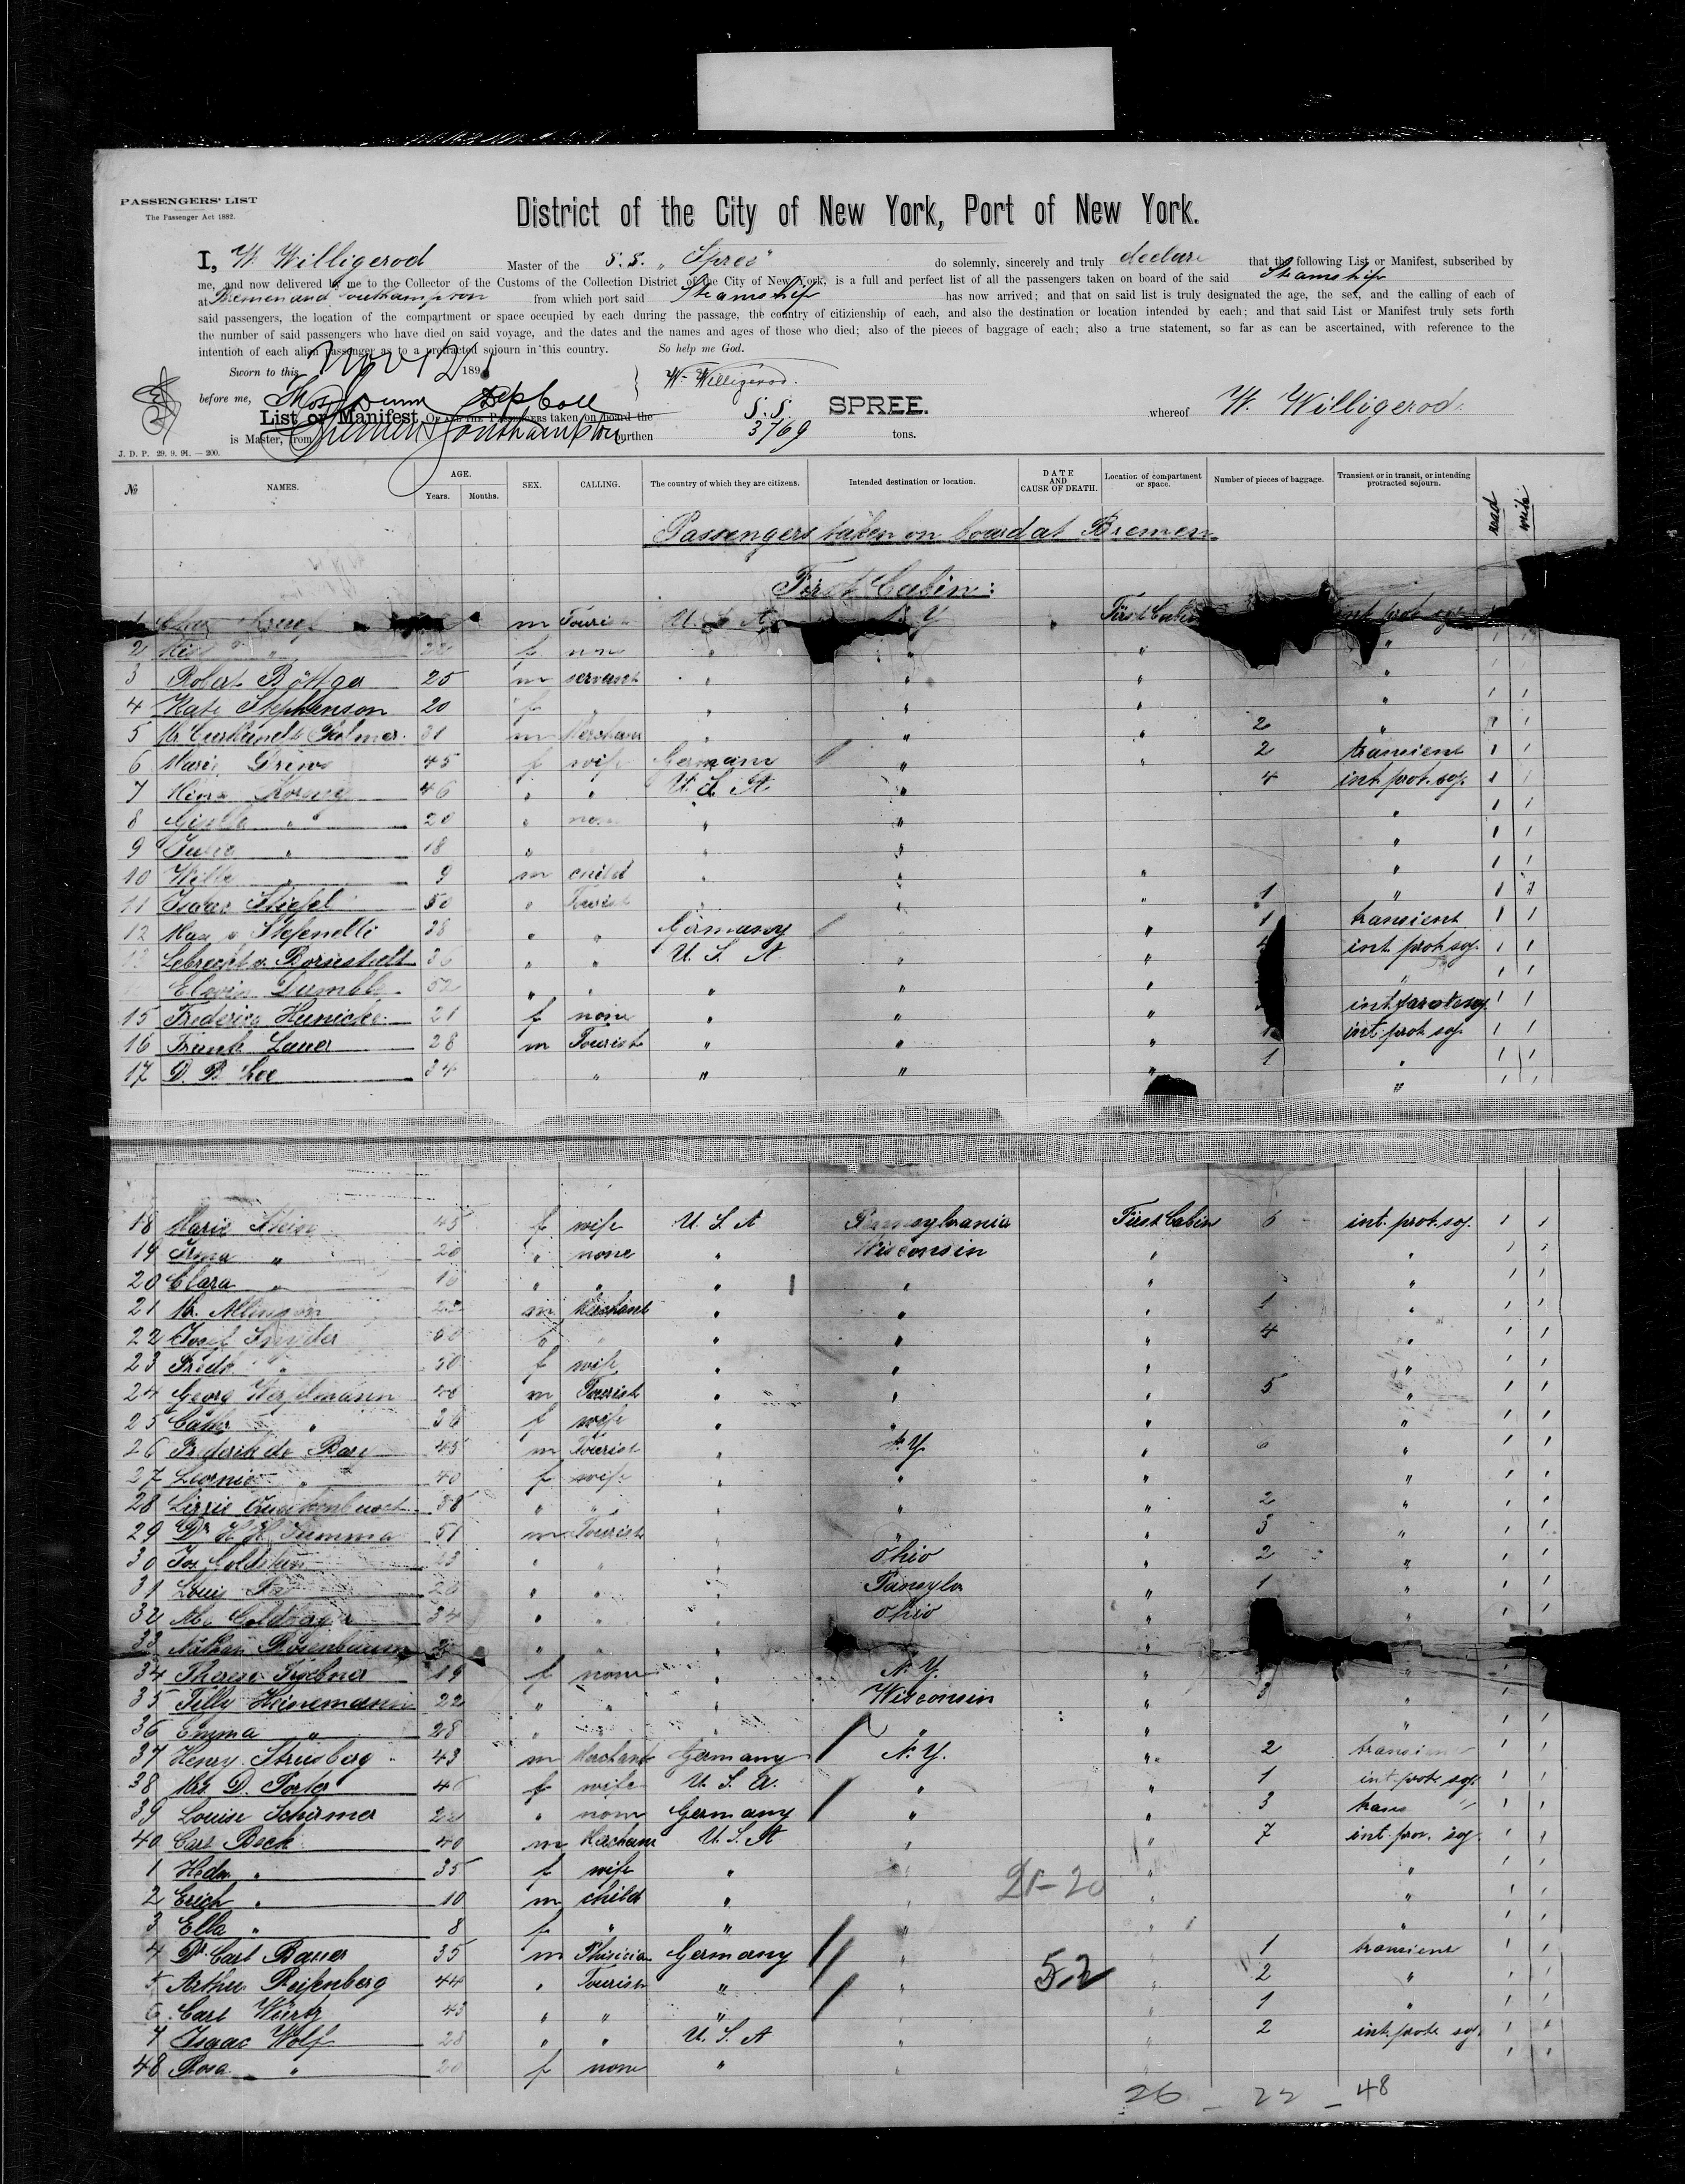 PASSENGERS' LIST
The Passenger Act 1882.
District of the City of New York, Port of New York.
I, W. Willigerod Master of the S.S. „Spree" do solemnly, sincerely and truly declare that the following List or Manifest, subscribed by
me, and now delivered by me to the Collector of the Customs of the Collection District of the City of New York, is a full and perfect list of all the passengers taken on board of the said Steamship
at Bremen and Southampton from which port said Steamship has now arrived; and that on said list is truly designated the age, the sex, and the calling of each of
said passengers, the location of the compartment or space occupied by each during the passage, the country of citizienship of each, and also the destination or location intended by each; and that said List or Manifest truly sets forth
the number of said passengers who have died on said voyage, and the dates and the names and ages of those who died; also of the pieces of baggage of each; also a true statement, so far as can be ascertained, with reference to the
intention of each alien passenger as to a protracted sojourn in this country. So help me God.
Sworn to this Nov 12 1891 W. Willigerod.
before me, Thos Dunn Dep Coll
List or Manifest OF ALL THE PASSENGERS taken on board the S.S. SPREE. whereof W. Willigerod
is Master, from Bremen & Southampton burthen 3769 tons.
J. D. P. 29. 9. 91. — 200.
№ NAMES. AGE. Years. Months. SEX. CALLING. The country of which they are citizens. Intended destination or location. DATE AND CAUSE OF DEATH. Location of compartment or space. Number of pieces of baggage. Transient or in transit, or intending protracted sojourn. read write
Passengers taken on board at Bremen
First Cabin:
1 m U. S. A. N. Y First Cabin
2 Miss " f "
3 Robert Böttger 25 m servant " " " "
4 Kate Stephenson 20 f " " " " "
5 31 m " " " 2 "
6 Marie 45 f wife Germany " " 2 transient
7 46 " " U. S. A. " 4 int. prot. soj.
8 " 20 " " " "
9 " 18 " " " "
10 Willy " 9 m child " " " "
11 Isaac Stiefel 50 " Tourist " " " 1 "
12 Max v Stefenelli 38 " " Germany " 1 transient
Lebrecht v. Bornstedt 36 " " U. S. A. " " int. prot. soj.
Dumble 52 " " " " " "
15 21 f none " " " int. prot. soj.
16 Frank Lauer 28 m Tourist " " " 1 int. prot. soj.
17 D. B. 34 " " " " 1 "
18 Marie 45 f wife U. S. A Pennsylvania First Cabin 6 int. prot. soj.
19 Irma " 20 " none " Wisconsin " "
20 Clara " 16 " " " " " "
21 m Merchant " " " 1 "
22 Josef 60 " " " " " 4 "
23 " 50 f wife " " " "
24 Georg 40 m Tourist " " " 5 "
25 " 36 f wife " " " "
26 Frederik de Bary 45 m Tourist " N. Y. " 6 "
27 " 40 f wife " " " "
28 Lizzie 38 " " " " " 2 "
29 Dr. H. H. 51 m Tourist " " " 3 "
30 Jos. Goldstein 43 " " " Ohio " 2 "
31 Louis 20 " " " " 1 "
32 34 " " " Ohio " "
33 Nathan Rosenbaum " " " "
34 Therese 19 f none " N. Y. " "
35 Tilly Heinemann 22 " " " Wisconsin " 3 "
36 Emma " 28 " " " " " "
37 Henry Streisberg 43 m Merchant Germany N. Y. " 2 transient
38 Mrs. D. Porter 46 f wife U. S. A. " " 1 int. prot. soj.
39 Louise Schirmer 22 " none Germany " " 3 trans "
40 Carl Beck 40 m Merchant U. S. A " " 7 int. prot. soj.
1 " 35 f wife " " " "
2 Erich " 10 m child " " " "
21-20
3 Ella " 8 f " " " " "
4 Dr. Carl Bauer 35 m Phisician Germany " " 1 transient
5 Arthur Reifenberg 44 " Tourist " " " 2 "
52
6 Carl Würtz 45 " " " " 1 "
7 Isaac Wolf 28 " " U. S. A " " 2 int. prot. soj.
48 Rosa " 20 f none " "
26 – 22 – 48